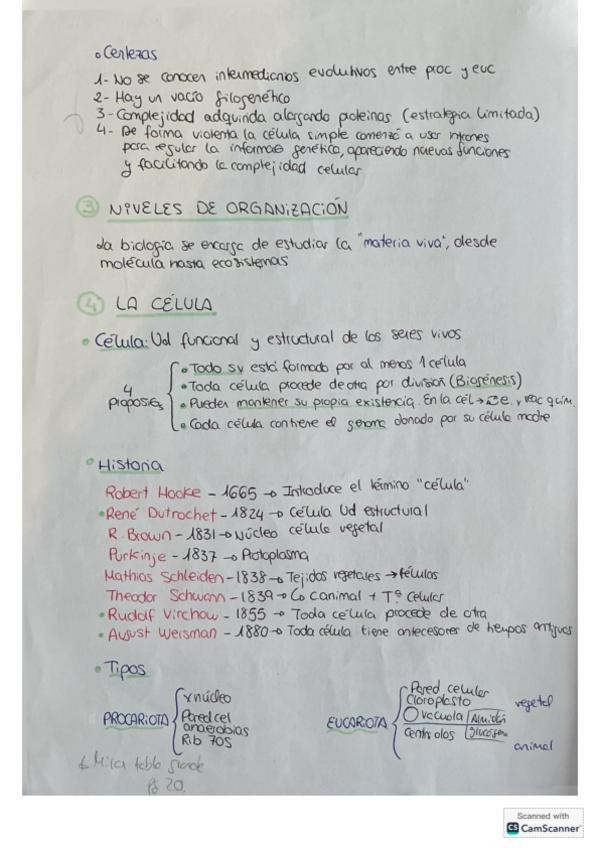 Certezas
1- No se conocen intermediarios evolutivos entre proc y euc
2- Hay un vacío filogenético
3- Complejidad adquirida alargando proteínas (estrategia limitada)
4- De forma violenta la célula simple comenzó a usar intrones
para regular la informac genética, apareciendo nuevas funciones
y facilitando la complejidad celular
3 NIVELES DE ORGANIZACIÓN
La biología se encarga de estudiar la "materia viva", desde
molécula hasta ecosistemas
4 LA CÉLULA
Célula: Ud funcional y estructural de los seres vivos
4 propos
Todo sv está formado por al menos 1 célula
Toda célula procede de otra por división (Biogénesis)
Pueden mantener su propia existencia. En la cél → e. y reac quím.
Cada célula contiene el genoma donado por su célula madre
Historia
Robert Hooke - 1665 → Introduce el término "célula"
René Dutrochet - 1824 → Célula Ud estructural
R. Brown - 1831 → Núcleo célula vegetal
Purkinje - 1837 → Protoplasma
Mathias Schleiden - 1838 → Tejidos vegetales → células
Theodor Schwann - 1839 → animal + Tª Celular
Rudolf Virchow - 1855 → Toda célula procede de otra
August Weisman - 1880 → Toda célula tiene antecesores de tiempos antiguos
Tipos
PROCARIOTA
x núcleo
Pared cel
anaerobias
Rib 70S
EUCARIOTA
Pared celular
Cloroplasto
vacuola Almidón
vegetal
Centriolos glucógeno
animal
Mira tabla grande
Pg 20.
Scanned with
CS CamScanner